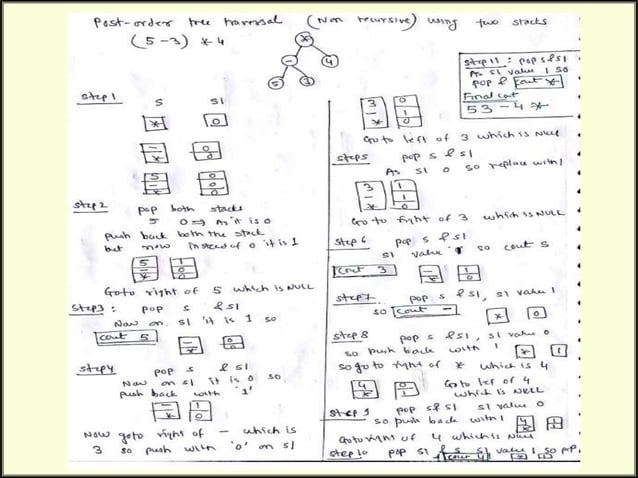 Post-order tree traversal (Non recursive) using two stacks
(5-3) * 4
*
- 4
5 3
Step 1 S S1
* 0
- 0
* 0
5 0
- 0
* 0
Step 2 pop both stacks
5 0 ⇒ As it is 0
push back both the stack
but now instead of 0 it is 1
5 1
- 0
* 0
Goto right of 5 which is NULL
Step3: pop S & S1
Now on S1 it is 1 so
cout 5
- 0
* 0
Step4 pop S & S1
Now on S1 it is 0 so
push back with '1'
- 1
* 0
Now goto right of - which is
3 so push with '0' on S1
3 0
- 1
* 0
Go to left of 3 which is NULL
Step5 pop S & S1
As S1 0 so replace with 1
3 1
- 1
* 0
Go to right of 3 which is NULL
Step 6 pop S & S1
S1 value 1 so cout S
cout 3
- 1
* 0
Step7 pop S & S1, S1 value 1
so cout -
* 0
Step 8 pop S & S1, S1 value 0
so push back with 1
* 1
so go to right of * which is 4
4 0
* 1
Go to left of 4
which is NULL
Step 9 pop S & S1 S1 value 0
so push back with 1
4 1
* 1
Goto right of 4 which is NULL
Step 10 pop S1 & S S1 value 1 so pop
cout 4
* 1
Step 11: pop S & S1
As S1 value 1 so
pop & cout *
Final cout
5 3 - 4 *